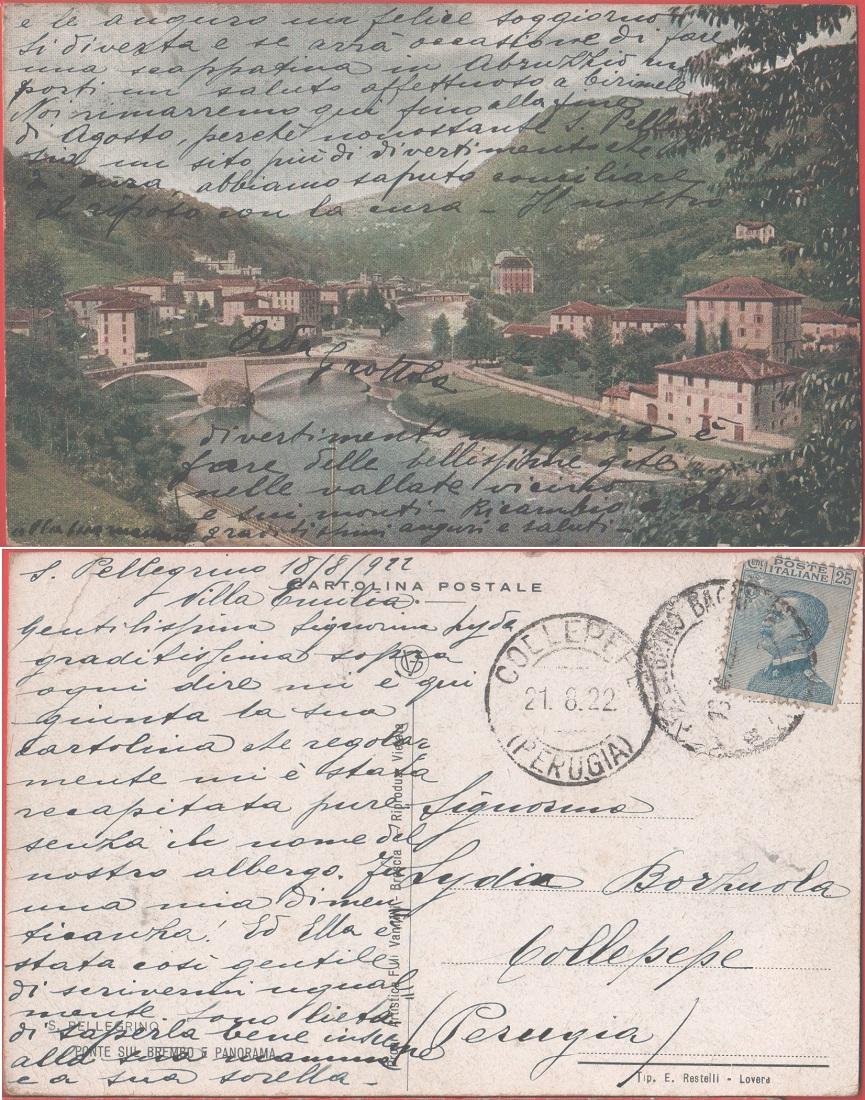 e le auguro un felice soggiorno
si diverta e se avrà occasione di fare
una scappatina in Abruzzo mi
porti un saluto affettuoso a
Noi rimarremo qui fino alla fine
di Agosto, perchè nonostante S. Pelle
sia un sito più di divertimento che
di cura abbiamo saputo conciliare
il riposo con la cura - Il nostro
Grottola
divertimento maggiore è
fare delle bellissime gite
nelle vallate vicino
e sui monti - Ricambio a Lei
alla mamma graditissimi auguri e saluti -
S. Pellegrino 18/8/922
CARTOLINA POSTALE
Villa Emilia. -
Gentilissima Signorina Lyda
graditissima sopra
ogni dire mi è qui
giunta la sua
cartolina che regolar
mente mi è stata
recapitata pure
senza il nome del
nostro albergo. Fu
una mia dimen
ticanza! Ed Ella è
stata così gentile
di scrivermi ugual
mente sono lieta
di saperla bene insieme
alla sua mamma
e a sua sorella -
S. PELLEGRINO
PONTE SUL BREMBO E PANORAMA
POSTE
ITALIANE 25
COLLEPEPE
21. 8. 22
(PERUGIA)
Signorina
Lydia
Collepepe
(Perugia)
Tip. E. Restelli - Lovere